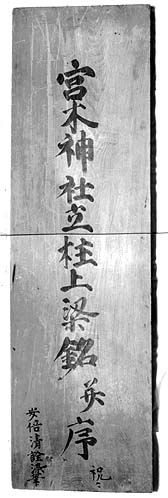 宮木神社立柱上梁銘并序
祝〻
安倍清詮謹筆